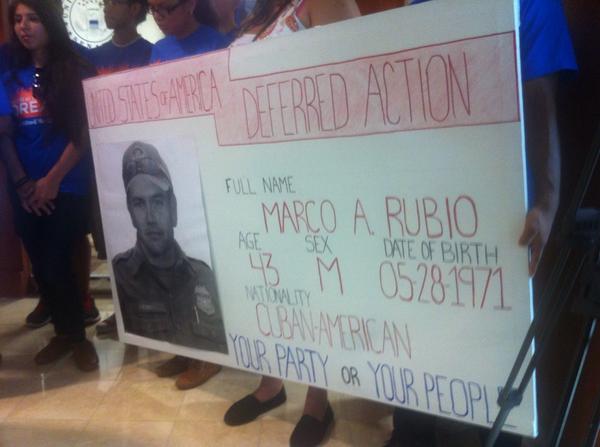 UNITED STATES OF AMERICA
DEFERRED ACTION
FULL NAME
MARCO A. RUBIO
AGE SEX DATE OF BIRTH
43 M 05-28-1971
NATIONALITY
CUBAN-AMERICAN
YOUR PARTY OR YOUR PEOPLE